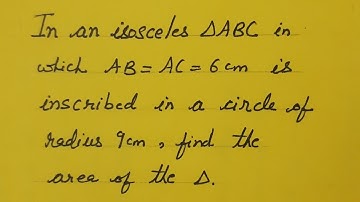 In an isosceles ΔABC in
which AB = AC = 6cm is
inscribed in a circle of
radius 9cm, find the
area of the Δ.